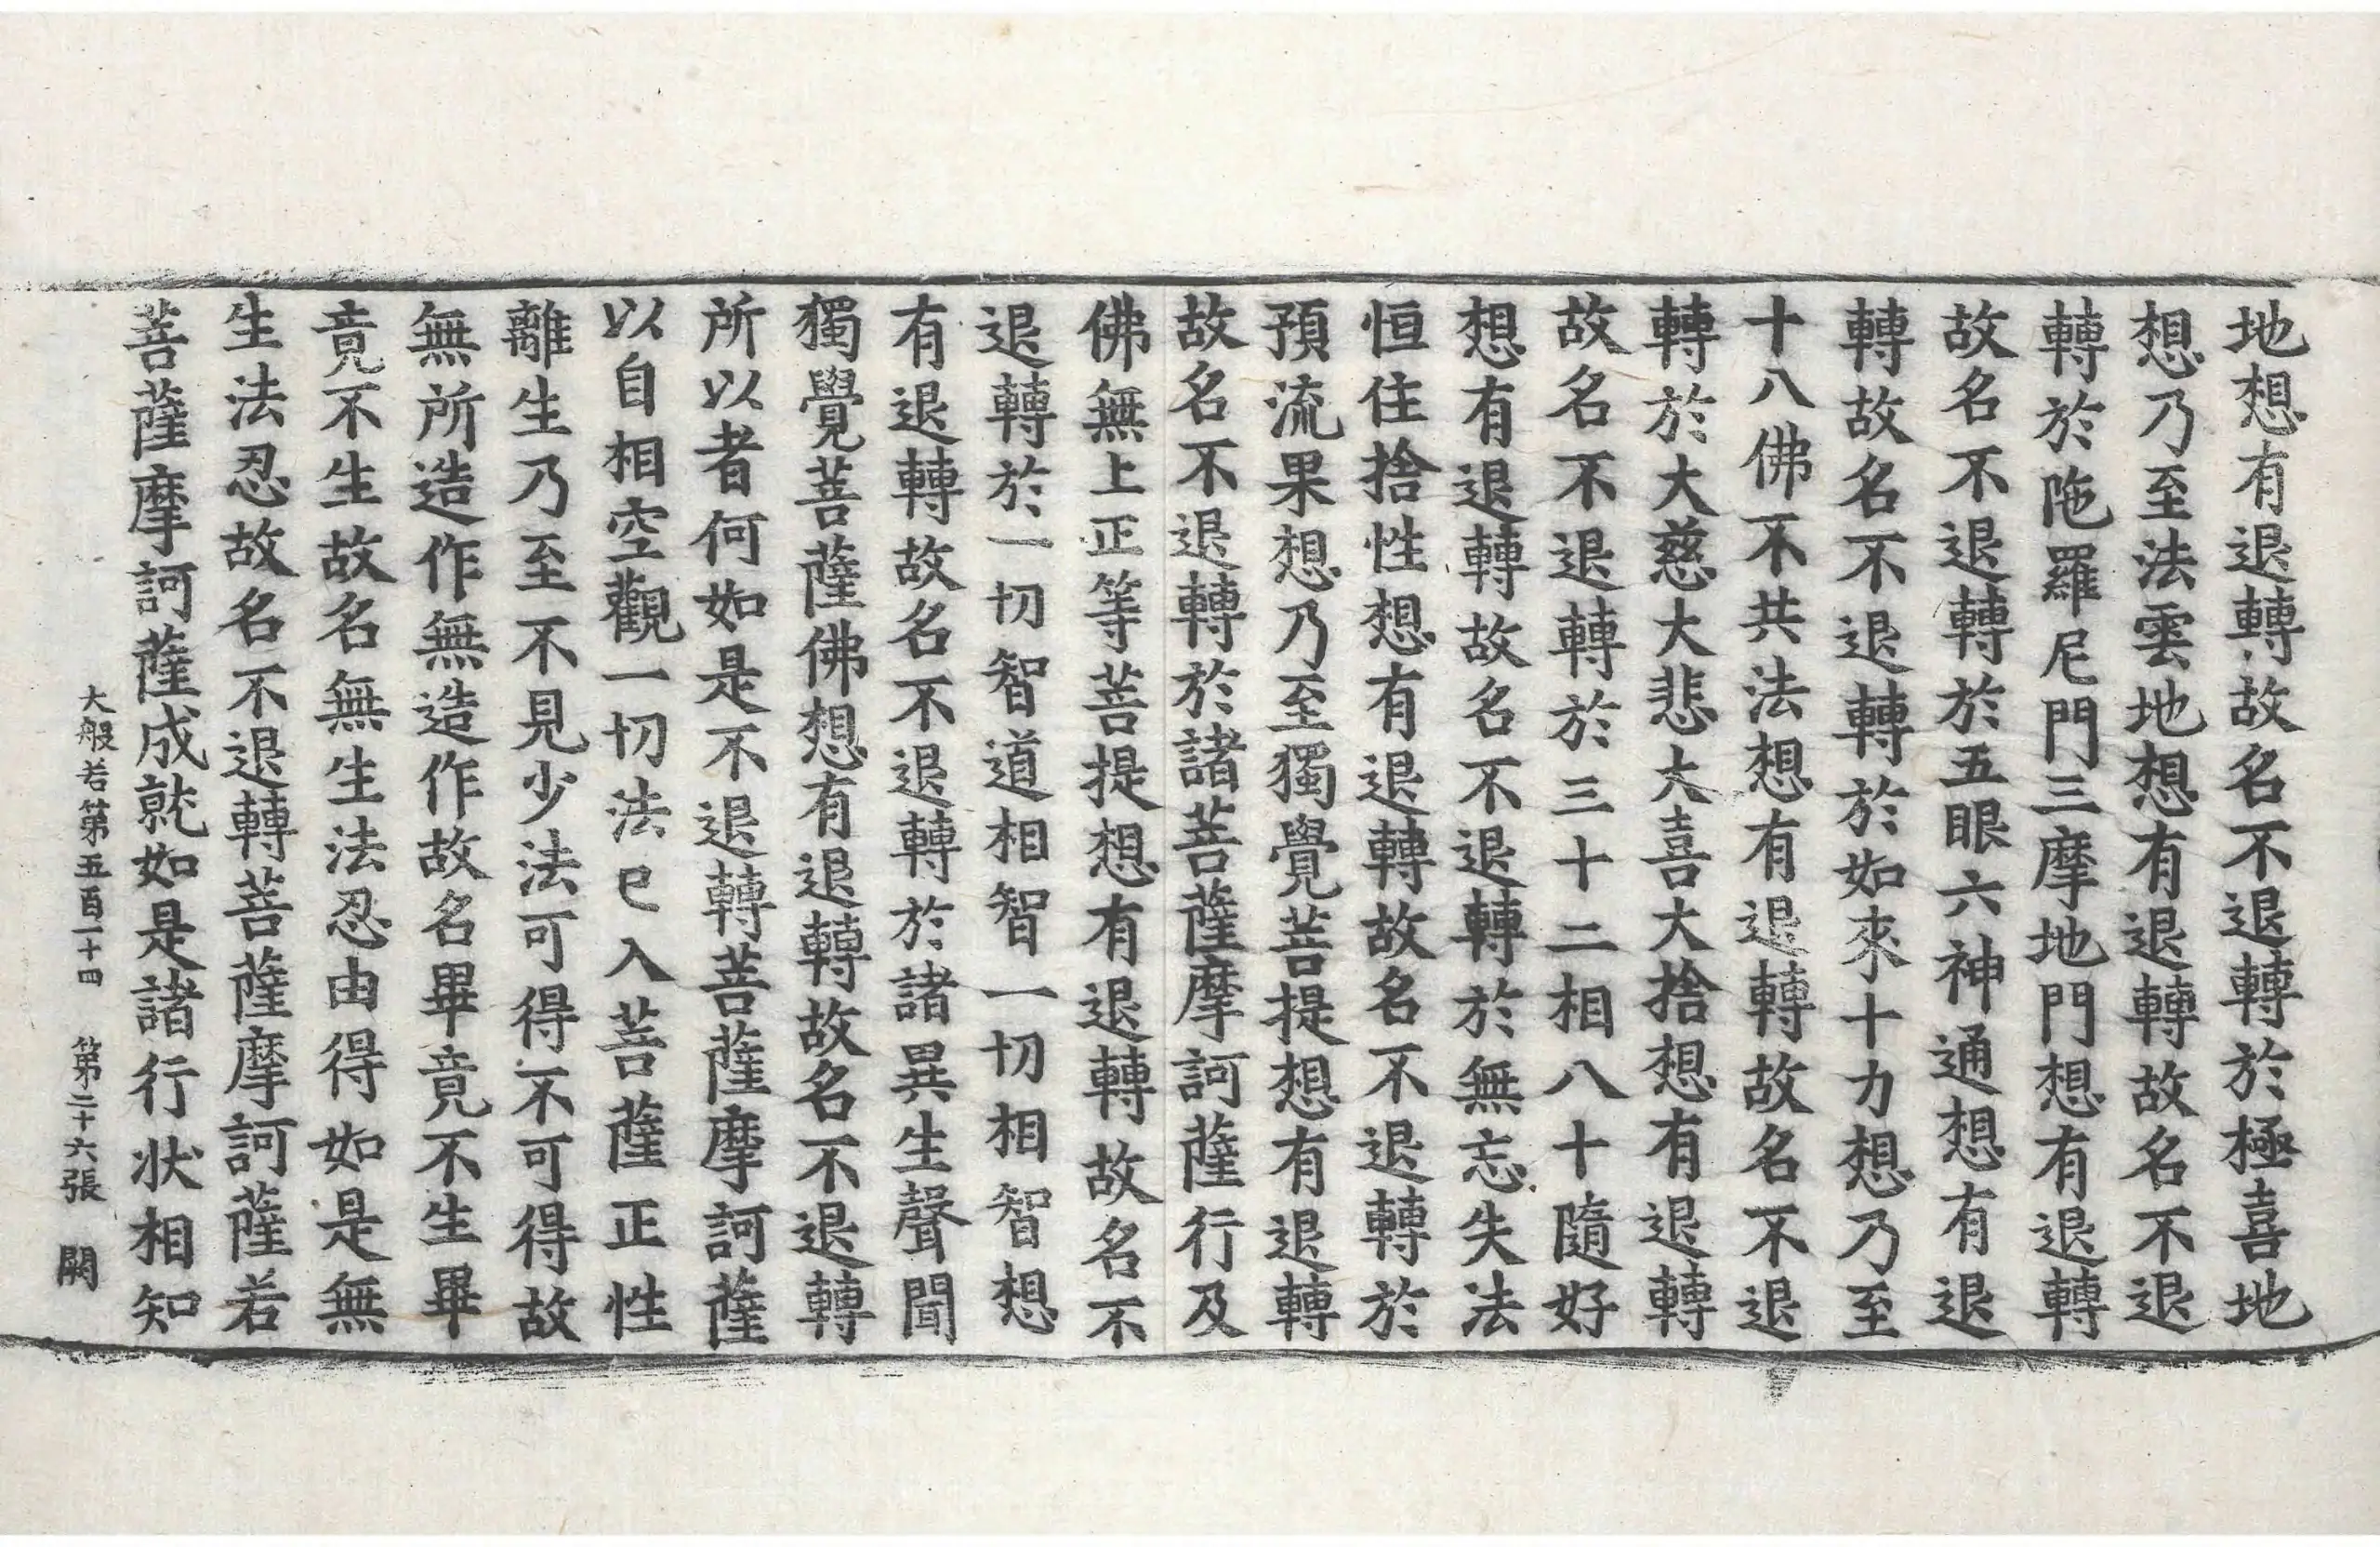 地想有退轉故名不退轉於極喜地
想乃至法雲地想有退轉故名不退
轉於陁羅尼門三摩地門想有退轉
故名不退轉於五眼六神通想有退
轉故名不退轉於如來十力想乃至
十八佛不共法想有退轉故名不退
轉於大慈大悲大喜大捨想有退轉
故名不退轉於三十二相八十隨好
想有退轉故名不退轉於無忘失法
恒住捨性想有退轉故名不退轉於
預流果想乃至獨覺菩提想有退轉
故名不退轉於諸菩薩摩訶薩行及
佛無上正等菩提想有退轉故名不
退轉於一切智道相智一切相智想
有退轉故名不退轉於諸異生聲聞
獨覺菩薩佛想有退轉故名不退轉
所以者何如是不退轉菩薩摩訶薩
以自相空觀一切法已入菩薩正性
離生乃至不見少法可得不可得故
無所造作無造作故名畢竟不生畢
竟不生故名無生法忍由得如是無
生法忍故名不退轉菩薩摩訶薩若
菩薩摩訶薩成就如是諸行狀相知
大般若第五百一十四 第二十六張 闕